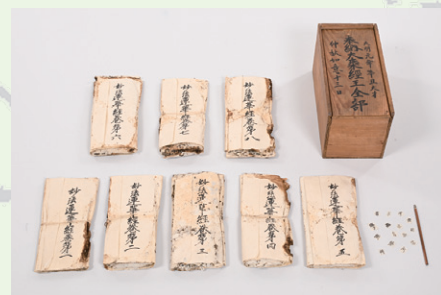 妙法蓮華経巻第六
妙法蓮華経巻第七
妙法蓮華経巻第八
奉納大乗経王全部
妙法蓮華経巻第一
妙法蓮華経巻第二
妙法蓮華経巻第三
妙法蓮華経巻第四
妙法蓮華経巻第五